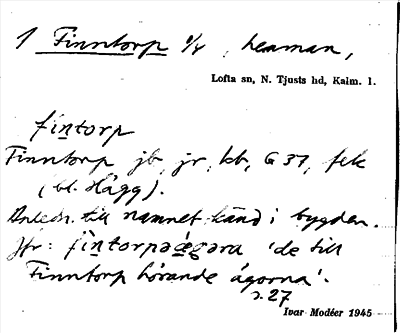 1 Finntorp 1/4, hemman,
Lofta sn, N. Tjusts hd, Kalm. l.
fintorp
Finntorp jb, jr, kb, G 37, fek
(bl. Hägg).
Anledn. till namnet känd i bygden.
Jfr: fintorpsägəra 'de till
Finntorp hörande ägorna'.
s. 27
Ivar Modéer 1945